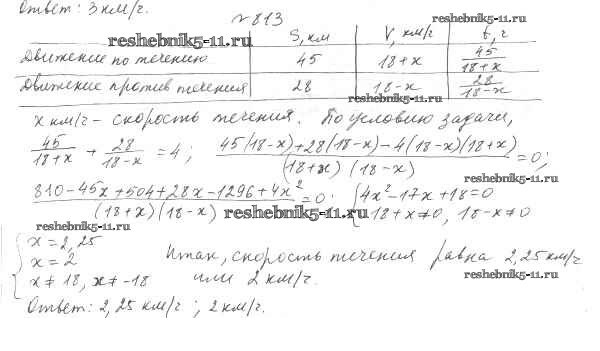 Ответ: 3 км/ч.
№ 813
reshebnik5-11.ru
reshebnik5-11.ru
S, км | V, км/ч | t, ч
Движение по течению | 45 | 18+x | 45/(18+x)
Движение против течения | 28 | 18-x | 28/(18-x)
reshebnik5-11.ru
x км/ч - скорость течения. По условию задачи,
45/(18+x) + 28/(18-x) = 4; (45(18-x)+28(18-x)-4(18-x)(18+x))/((18+x)(18-x)) = 0;
(810-45x+504+28x-1296+4x²)/((18+x)(18-x)) = 0. { 4x²-17x+18=0
18+x≠0, 18-x≠0
reshebnik5-11.ru
reshebnik5-11.ru
{ x = 2,25
x = 2
x ≠ 18, x ≠ -18
Итак, скорость течения равна 2,25 км/ч
или 2 км/ч.
reshebnik5-11.ru
Ответ: 2,25 км/ч; 2 км/ч.